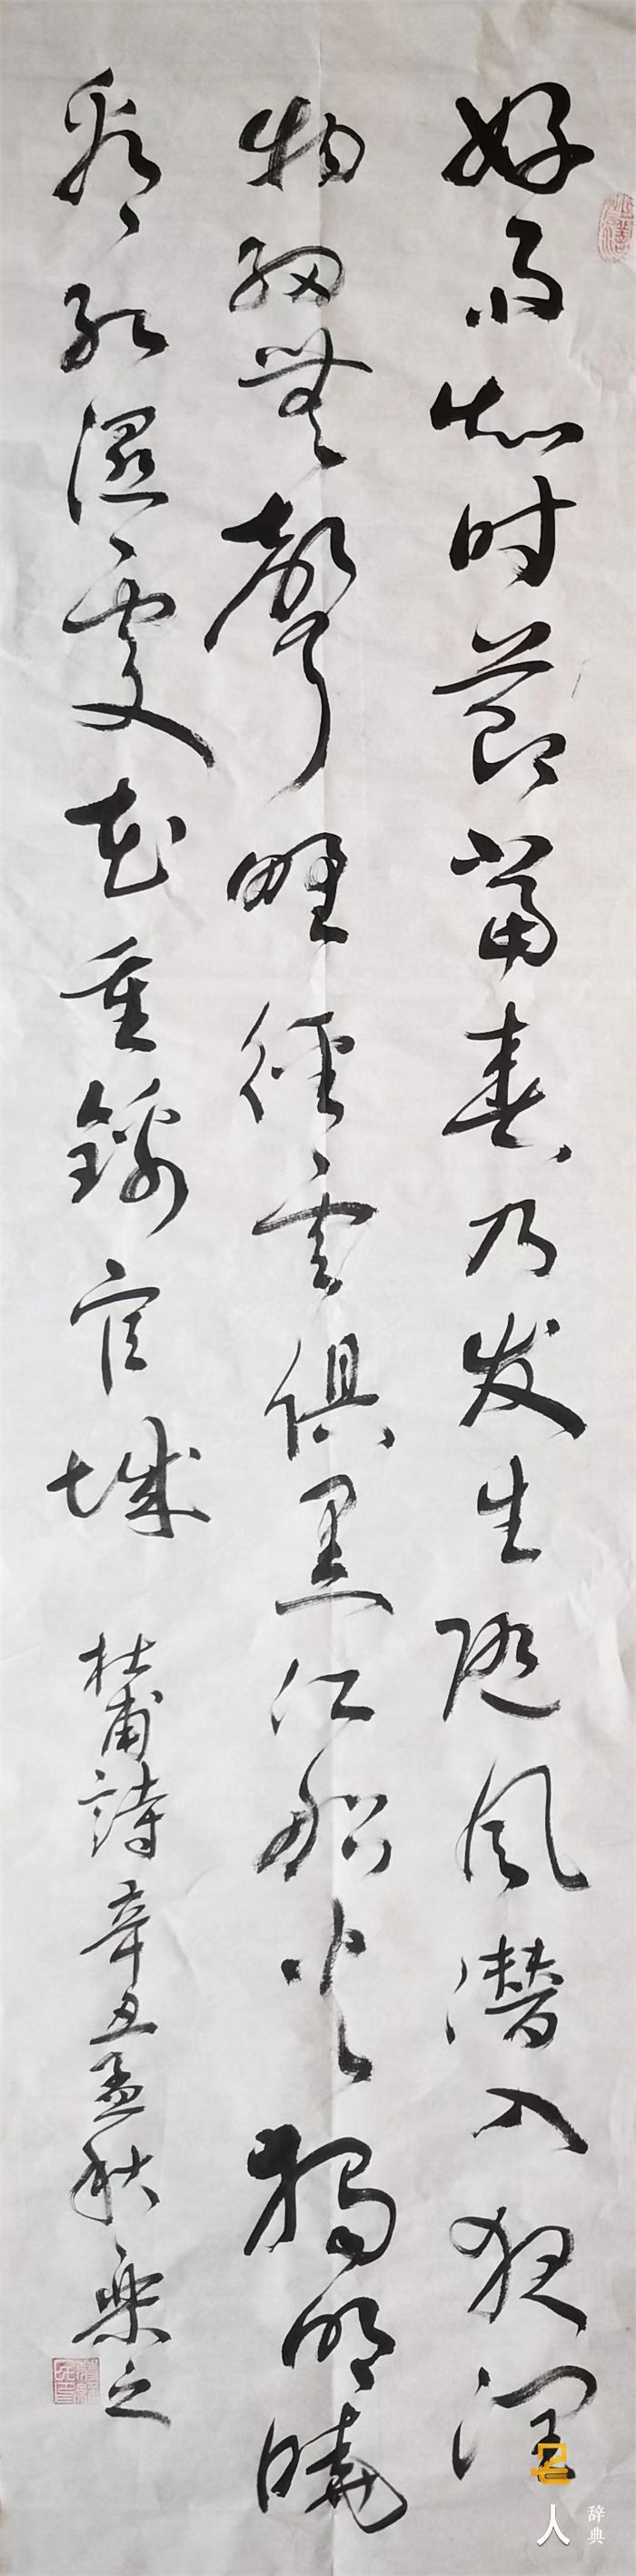 好雨知时节當春乃发生随风潜入夜润
物细無聲野径云俱黑江船火獨明曉
看红濕處花重錦官城
杜甫詩辛丑孟秋乐之
人
辞典